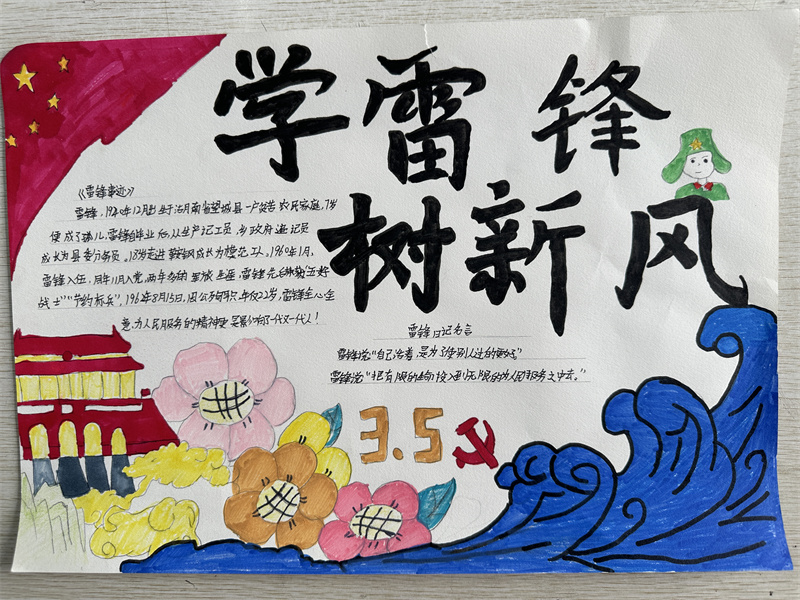 学雷锋
树新风
《雷锋事迹》
雷锋，1940年12月出生于湖南省望城县一户贫苦农民家庭，7岁
便成了孤儿，雷锋毕业后，从生产记工员 乡政府通记员
成长为县委公务员。18岁走进鞍钢成长为模范工人，1960年1月，
雷锋入伍，同年11月入党，两年多的军旅生涯，雷锋先后"五好
战士""节约标兵"，1962年8月15日，因公殉职，年仅22岁，雷锋全心全
意为人民服务的精神更是影响了一代又一代人！
雷锋日记名言
雷锋说"自己活着，是为了使别人过的更好"
雷锋说"把有限的生命投入到无限的为人民服务之中去。"
3.5